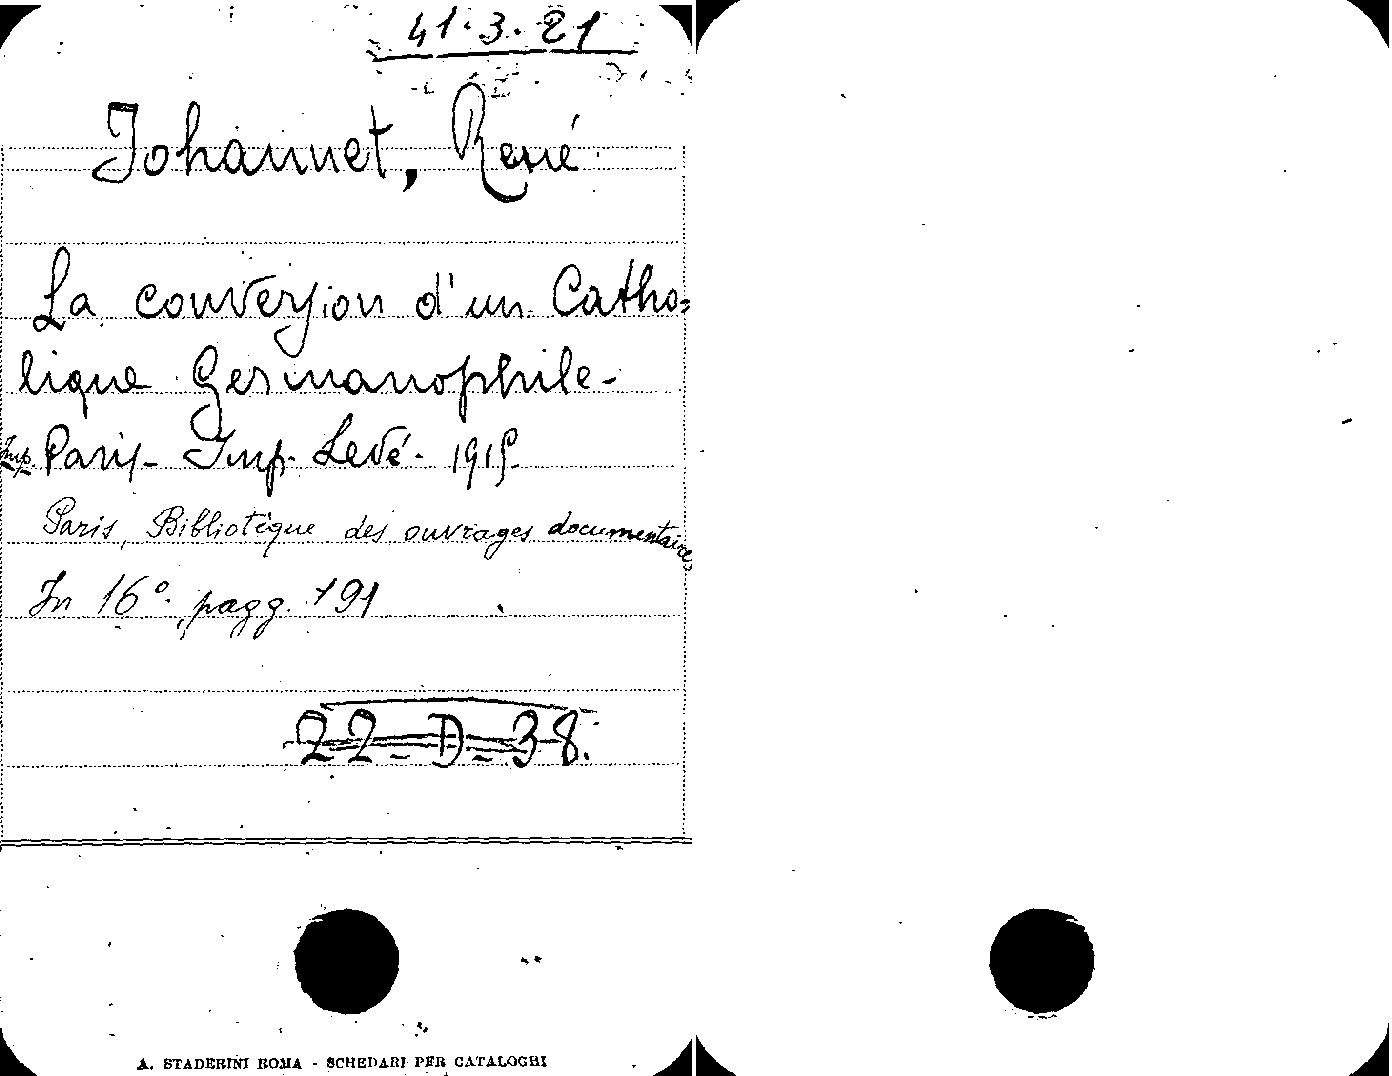 41.3.21
Johannet, René
La conversion d'un Catho=
lique Germanophile-
Imp. Paris- Imp. Levé. 1915.
Paris, Bibliotèque des ouvrages documentaires
In 16º. pagg. 191
22-D-38.
A. STADERINI ROMA - SCHEDARI PER CATALOGHI